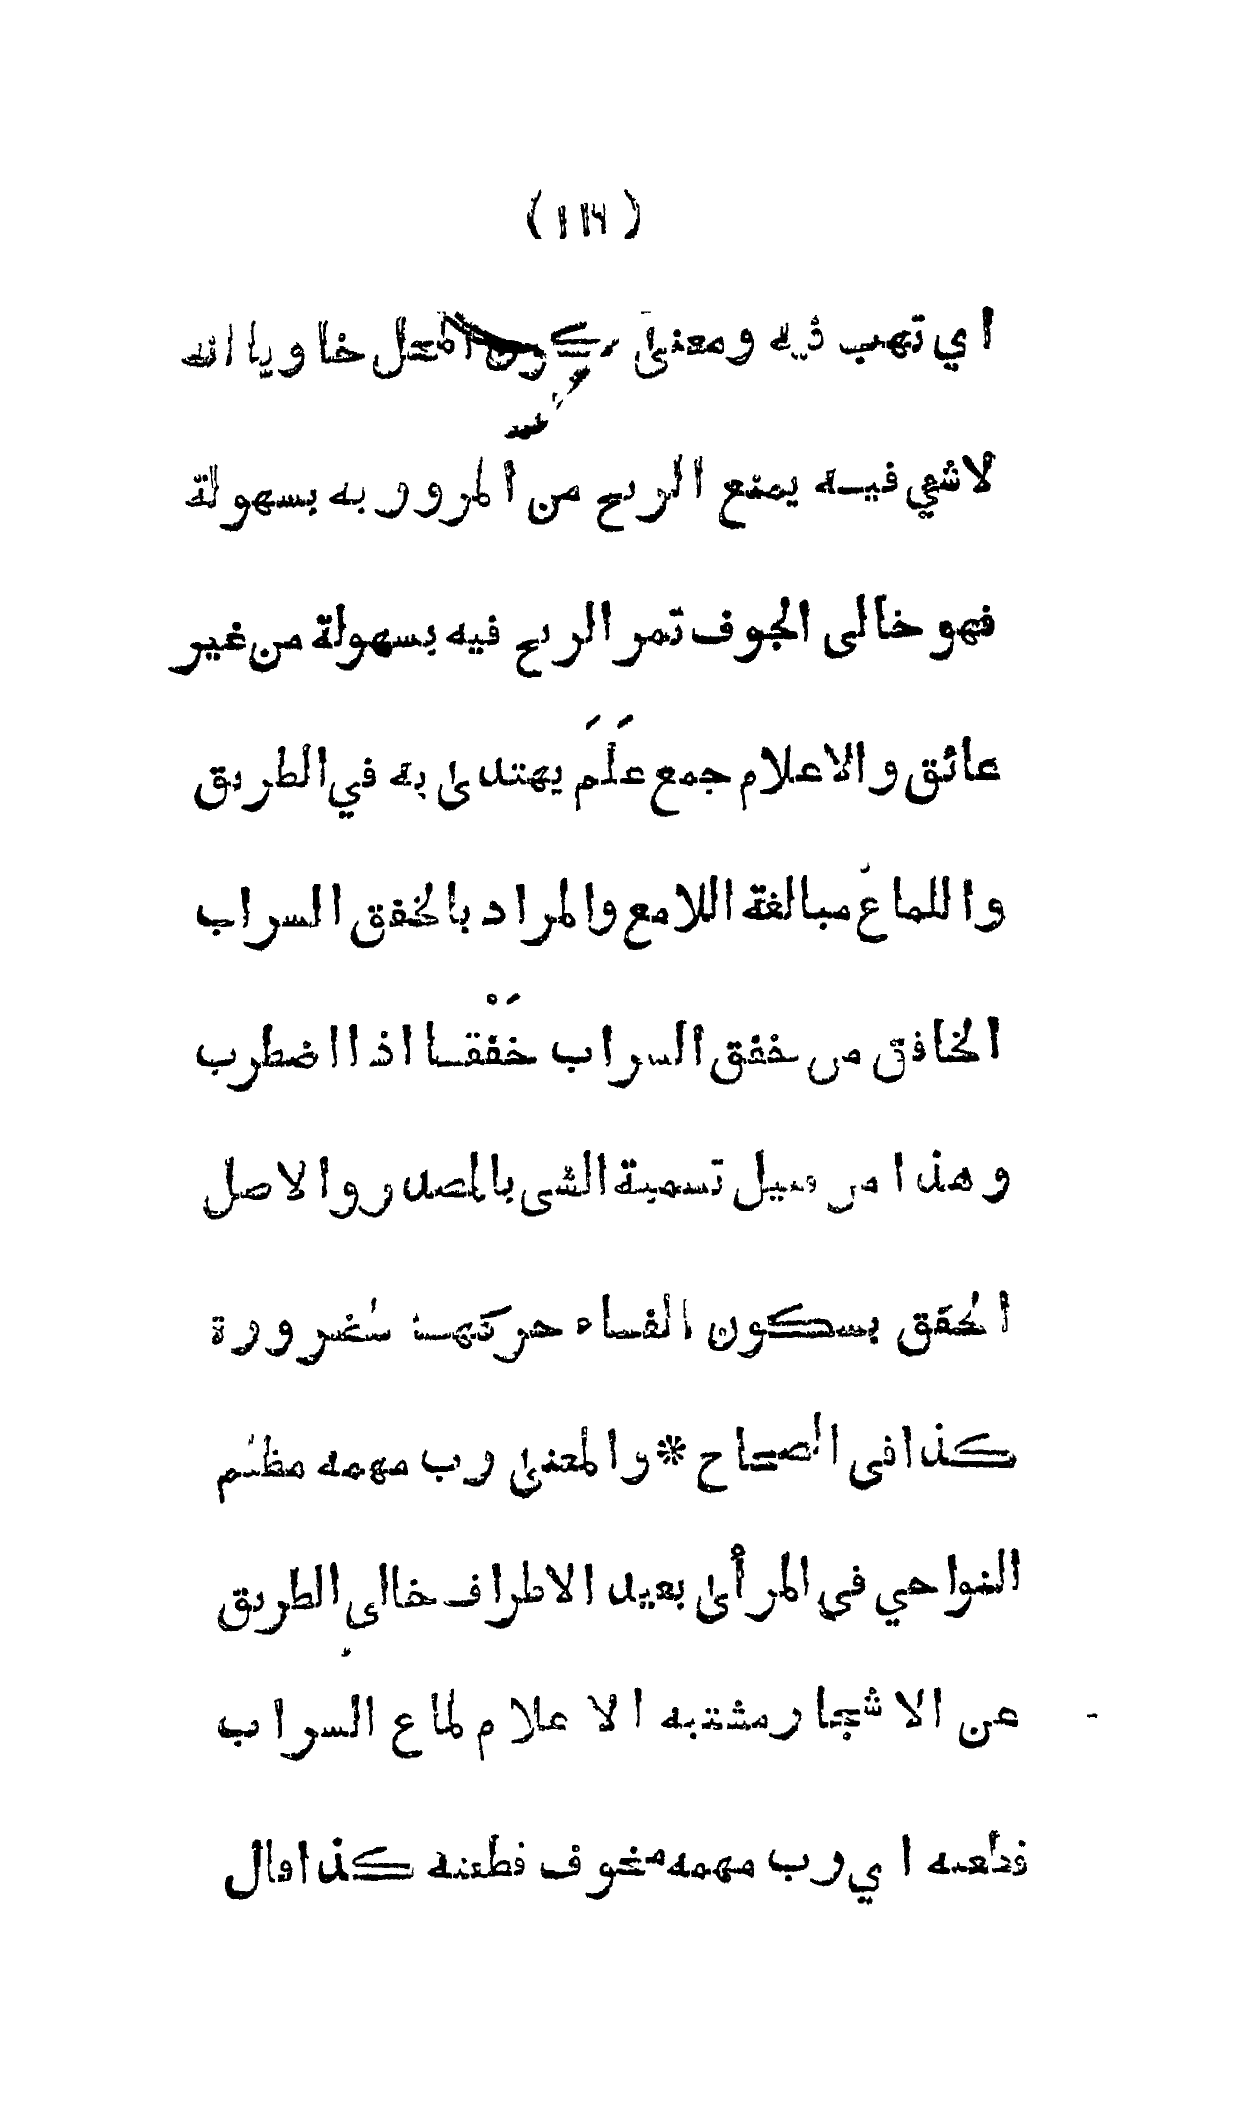 اي تهب فيه ومعنى كون المحل خاويا انه
لاشي فيه يمنع الريح من المرور به بسهولة
فهو خالى الجوف تمر الريح فيه بسهولة من غير
عائق والاعلام جمع عَلَم يهتدى به في الطريق
واللماع مبالغة اللامع والمراد بالخفق السراب
الخافق من خفق السراب خَفْقا اذا اضطرب
وهذا من قبيل تسمية الشى بالمصدر والاصل
الخفق بسكون الفاء حركها ضرورة
كذا فى الصحاح * والمعنى رب مهمه مظلم
النواحي في المرأى بعيد الاطراف خالى الطريق
عن الاشجار مشتبه الاعلام لماع السراب
قطعته اي رب مهمه مخوف قطعته كذا قال